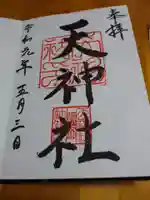 奉拝
天神社
令和元年五月三日